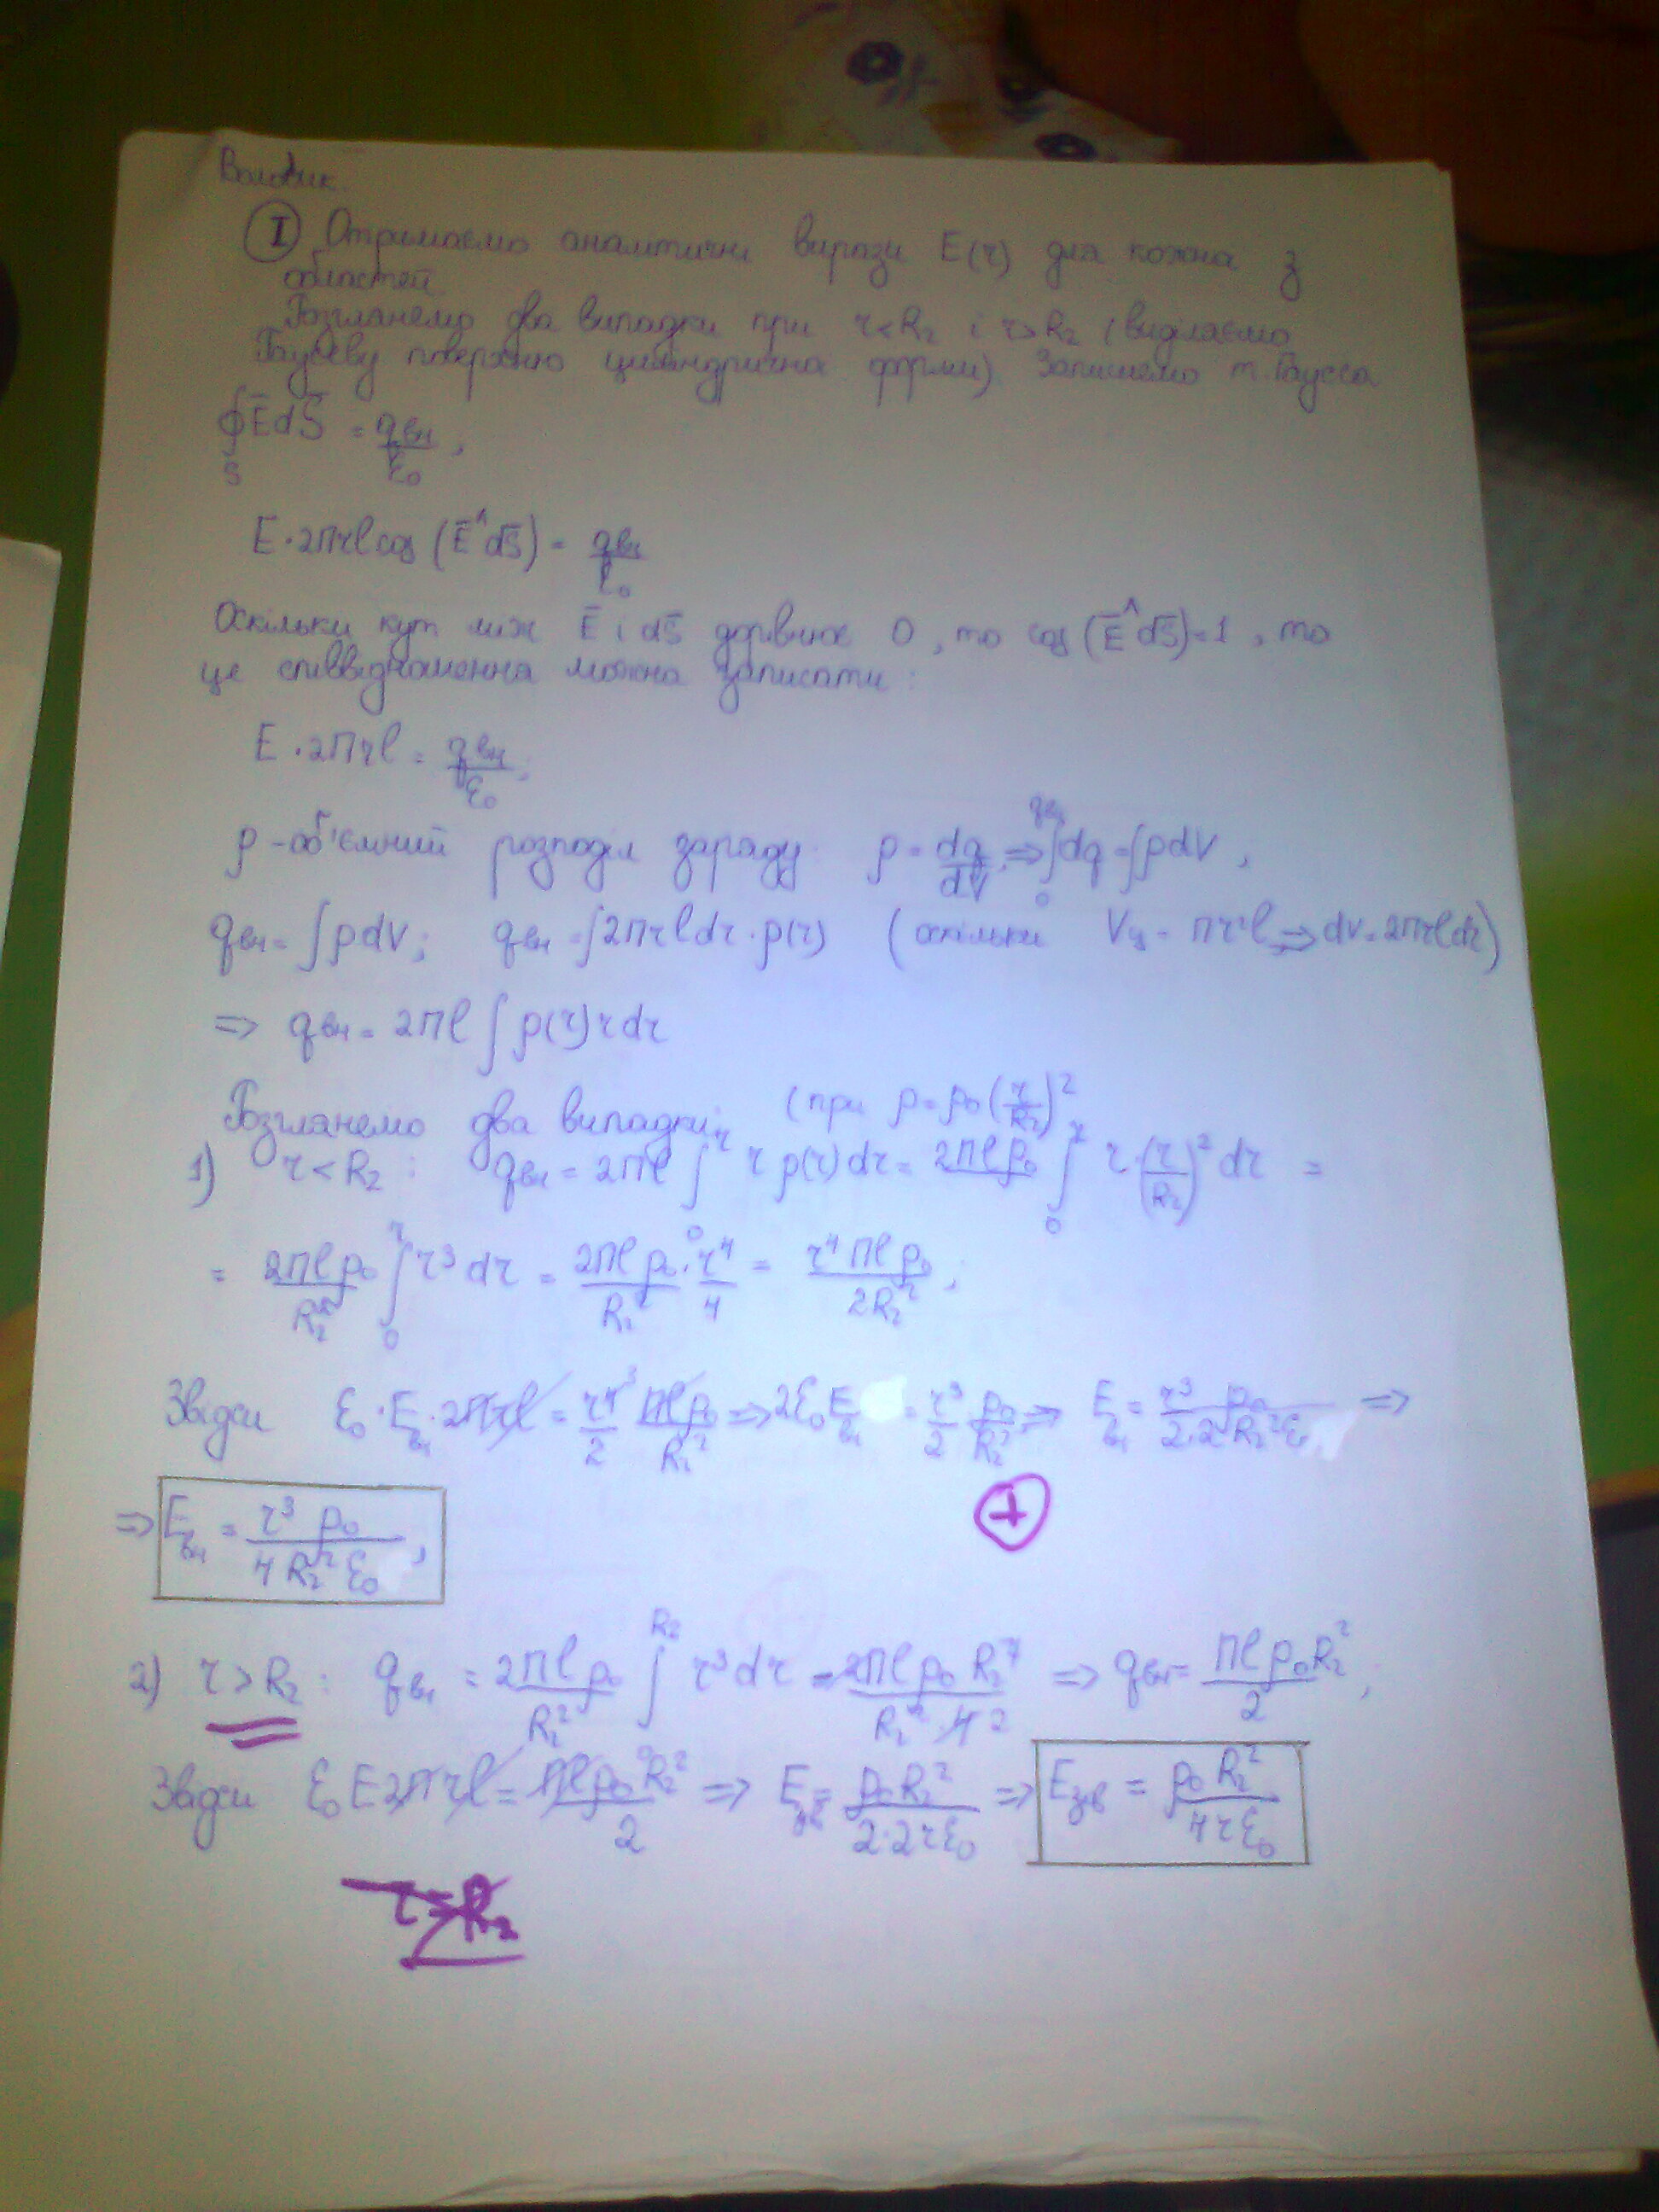 I Отримаємо аналітичні вирази E(r) для кожна з
областей
Розглянемо два випадки при r<R₂ і r>R₂ (виділяємо
Гаусеву поверхню циліндрична форми). Запишемо т. Гаусса
∮_S E̅dS̅ = q_вн/ε₀,
E·2πrl cos(E̅^dS̅) = q_вн/ε₀
Оскільки кут між E̅ і dS̅ дорівнює 0, то cos(E̅^dS̅)=1, то
це співвідношення можна записати:
E·2πrl = q_вн/ε₀;
ρ - об'ємний розподіл заряду. ρ = dq/dV ⇒ ∫₀^q_вн dq = ∫ρdV,
q_вн = ∫ρdV; q_вн = ∫2πrldr·ρ(r) (оскільки V_ц = πr²l ⇒ dV = 2πrldr)
⇒ q_вн = 2πl ∫ρ(r)rdr
Розглянемо два випадки: (при ρ = ρ₀(r/R₂)²
1) r<R₂: q_вн = 2πl ∫₀^r rρ(r)dr = 2πlρ₀ ∫₀^r r·(r/R₂)² dr =
= 2πlρ₀/R₂² ∫₀^r r³dr = 2πlρ₀/R₂² · r⁴/4 = r⁴πlρ₀/2R₂²;
Звідси ε₀·E_вн·2πrl = r⁴³/2 πlρ₀/R₂² ⇒ 2ε₀E_вн = r³/2 · ρ₀/R₂² ⇒ E_вн = r³ρ₀/2·2R₂²ε₀ ⇒
+
⇒ E_вн = r³ρ₀/4R₂²ε₀,
2) r>R₂: q_вн = 2πlρ₀/R₂² ∫₀^R₂ r³dr = 2πlρ₀R₂⁴/R₂²·4 2 ⇒ q_вн = πlρ₀R₂²/2;
Звідси ε₀E2πrl = πlρ₀R₂²/2 ⇒ E_зв = ρ₀R₂²/2·2rε₀ ⇒ E_зв = ρ₀R₂²/4rε₀